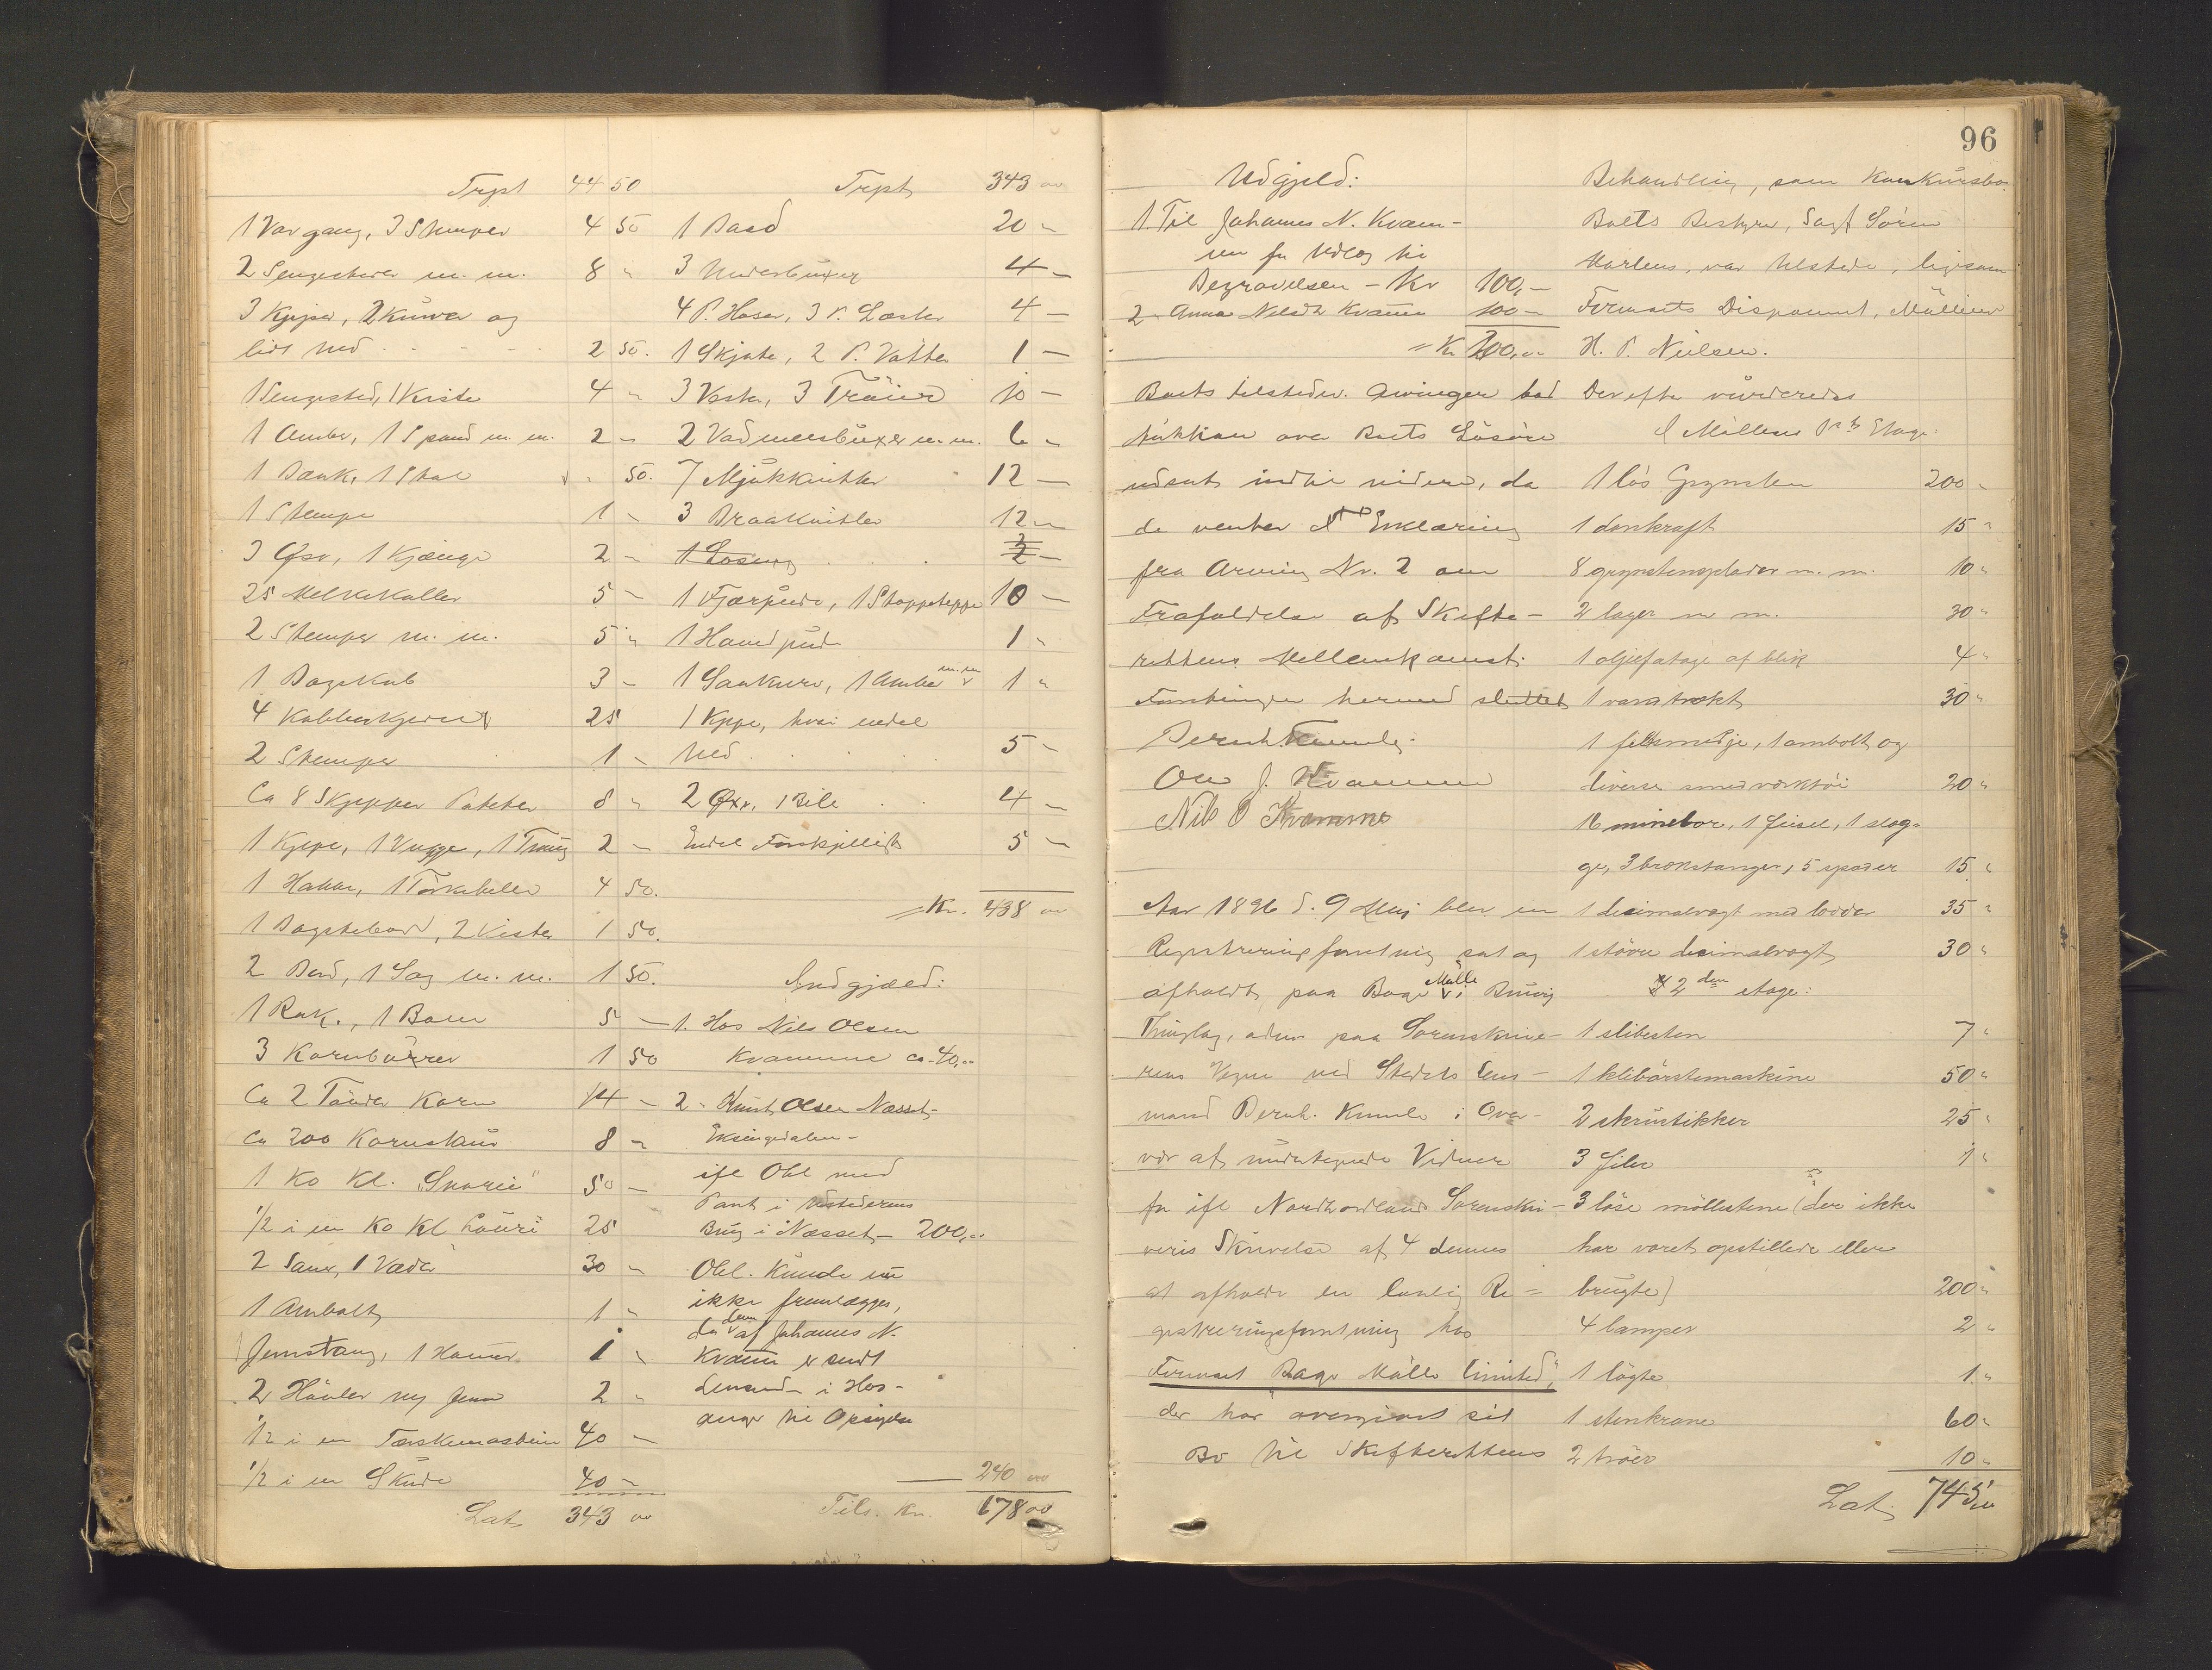 Trpt 44 50
1 Vævgang, 3 Stamper 4 50
2 Sengesteder m. m. 8 "
3 Kjiper, 2 Kurver og
lidt Ved 2 50.
1 Sengested, 1 Kiste 4 "
1 Amber, 1 Spand m. m. 2 "
1 Bænk, 1 Stol " 50.
1 Stampe 1 "
3 Øxer, 1 Kjænge 2 "
25 Melkekoller 5 "
2 Stamper m. m. 5 "
1 Bogskab 3 "
4 Kobberkjedel 25
2 Stamper 1 "
Ca 8 Skjepper Poteter 8 "
1 Kjipe, 1 Vugge, 1 Traug 2 "
1 Hakke, 1 Tørkehelle 4 50.
1 Bagstebord, 2 Kister 1 50.
2 Bord, 1 Sag m. m. 1 50.
1 Rok, 1 Bom 5 —
3 Kornbører 1 50
Ca 2 Tønder Korn 14 —
Ca 200 Kornstaur 8 "
1 Ko kl. "Snorei" 50 —
1/2 i en Ko kl. Lauri 25
2 Sauer, 1 Væder 30 "
1 Ambolt 1 "
1 Jernstang, 1 Hammer 1 "
2 Høvler, ny Jern 2 "
1/2 i en Tærskemaskine 40 —
1/2 i en Skude 40 —
Lat 343 00
Trpt 343 00
1 Baad 20 "
3 Underbuxer 4 —
4 P. Hoser, 3 P. Læster 4 —
1 Skjorte, 2 P. Vatter 1 —
3 Veste, 3 Trøier 10 —
2 Vadmelsbuxer m. m. 6 "
7 Mjukkvitler 12 —
3 Braakvitler 12 —
1 Fjærpude, 1 Stoppeteppe 10 —
1 Hovedpude 1 "
1 Saukurv, 1 Amber m. m 1 "
1 Kjipe, hvori endel
Ved 5 "
2 Øxer, 1 Bile 4 —
Endel Forskjelligt 5 —
= Kr. 438 00
Indgjæld:
1. Hos Nils Olsen
Kvamme ca. 40,00
2. Knut Olsen Næsset -
Eksingedalen -
ifl Obl. med
Pant i Udstederens
Brug i Næsset — 200,00
Obl. kunde nu
ikke fremlægges,
da den af Johannes N.
Kvamme er sendt
Lensmand i Hos-
anger til Opsigelse
240 00
Tils. Kr. 678 00
96
Udgjeld:
1. Til Johannes N. Kvam-
me for Udlæg til
Begravelsen - Kr 100,-
2. Anna Nilsd. Kvamme 100 —
= Kr 200,00
Boets tilstedev. Arvinger bad
Auktion over Boets Løsøre
udsat indtil videre, da
de venter Erklæring
fra Arving No. 2 om
Frafaldelse af Skifte-
rettens Mellemkomst.
Forretningen hermed sluttet
Bernh. Kumle.
Ole J. Kvamme
Nils O Kvamme
Aar 1896 d. 9 Mai blev en
Registreringsforretning sat og
afholdt paa Boge Mølle i Bruvig
Thinglag, adm. paa Sorenskrive-
rens Vegne ved Stedets Lens-
mand Bernh. Kumle i Over-
vær af undertegnede Vidner
for ifl Nordhordland Sorenskri-
veris Skrivelse af 4 dennes
at afholde en lovlig Re-
gistreringsforretning hos
Firmaet "Boge Mølle limited",
der har overgivet sit
Bo til Skifterettens
Behandling, som Konkursbo.
Boets Bestyrer, Sagf Søren
Martens, var tilstede, ligesom
Firmaets Disponent, Møller
H. P. Nielsen.
Derefter vurderedes
I Møllens 1ste Etage:
1 løs Grynsten 200 "
1 donkraft 15 "
8 grynstensplader m. m. 10 "
2 lager m m. 30 "
1 oljefatage af blik 4 "
1 varatrekt 30 "
1 feltsmedje, 1 ambolt og
diverse smedværktøi 20 "
16 minebor, 1 feisel, 1 slæg-
ge, 3 brækstanger, 5 spader 15 "
1 desimalvægt med lodder 35 "
1 større desimalvægt 30 "
I 2den etage:
1 slibesten 7 "
1 klibørstemaskine 50 "
2 skrustikker 25 "
3 File 1 "
3 løse møllestene (der ikke
har været opstillede eller
brugte) 200 "
4 lamper 2 "
1 løgte 1 "
1 stenkrane 60 "
2 trøer 10 "
Lat. 745 00